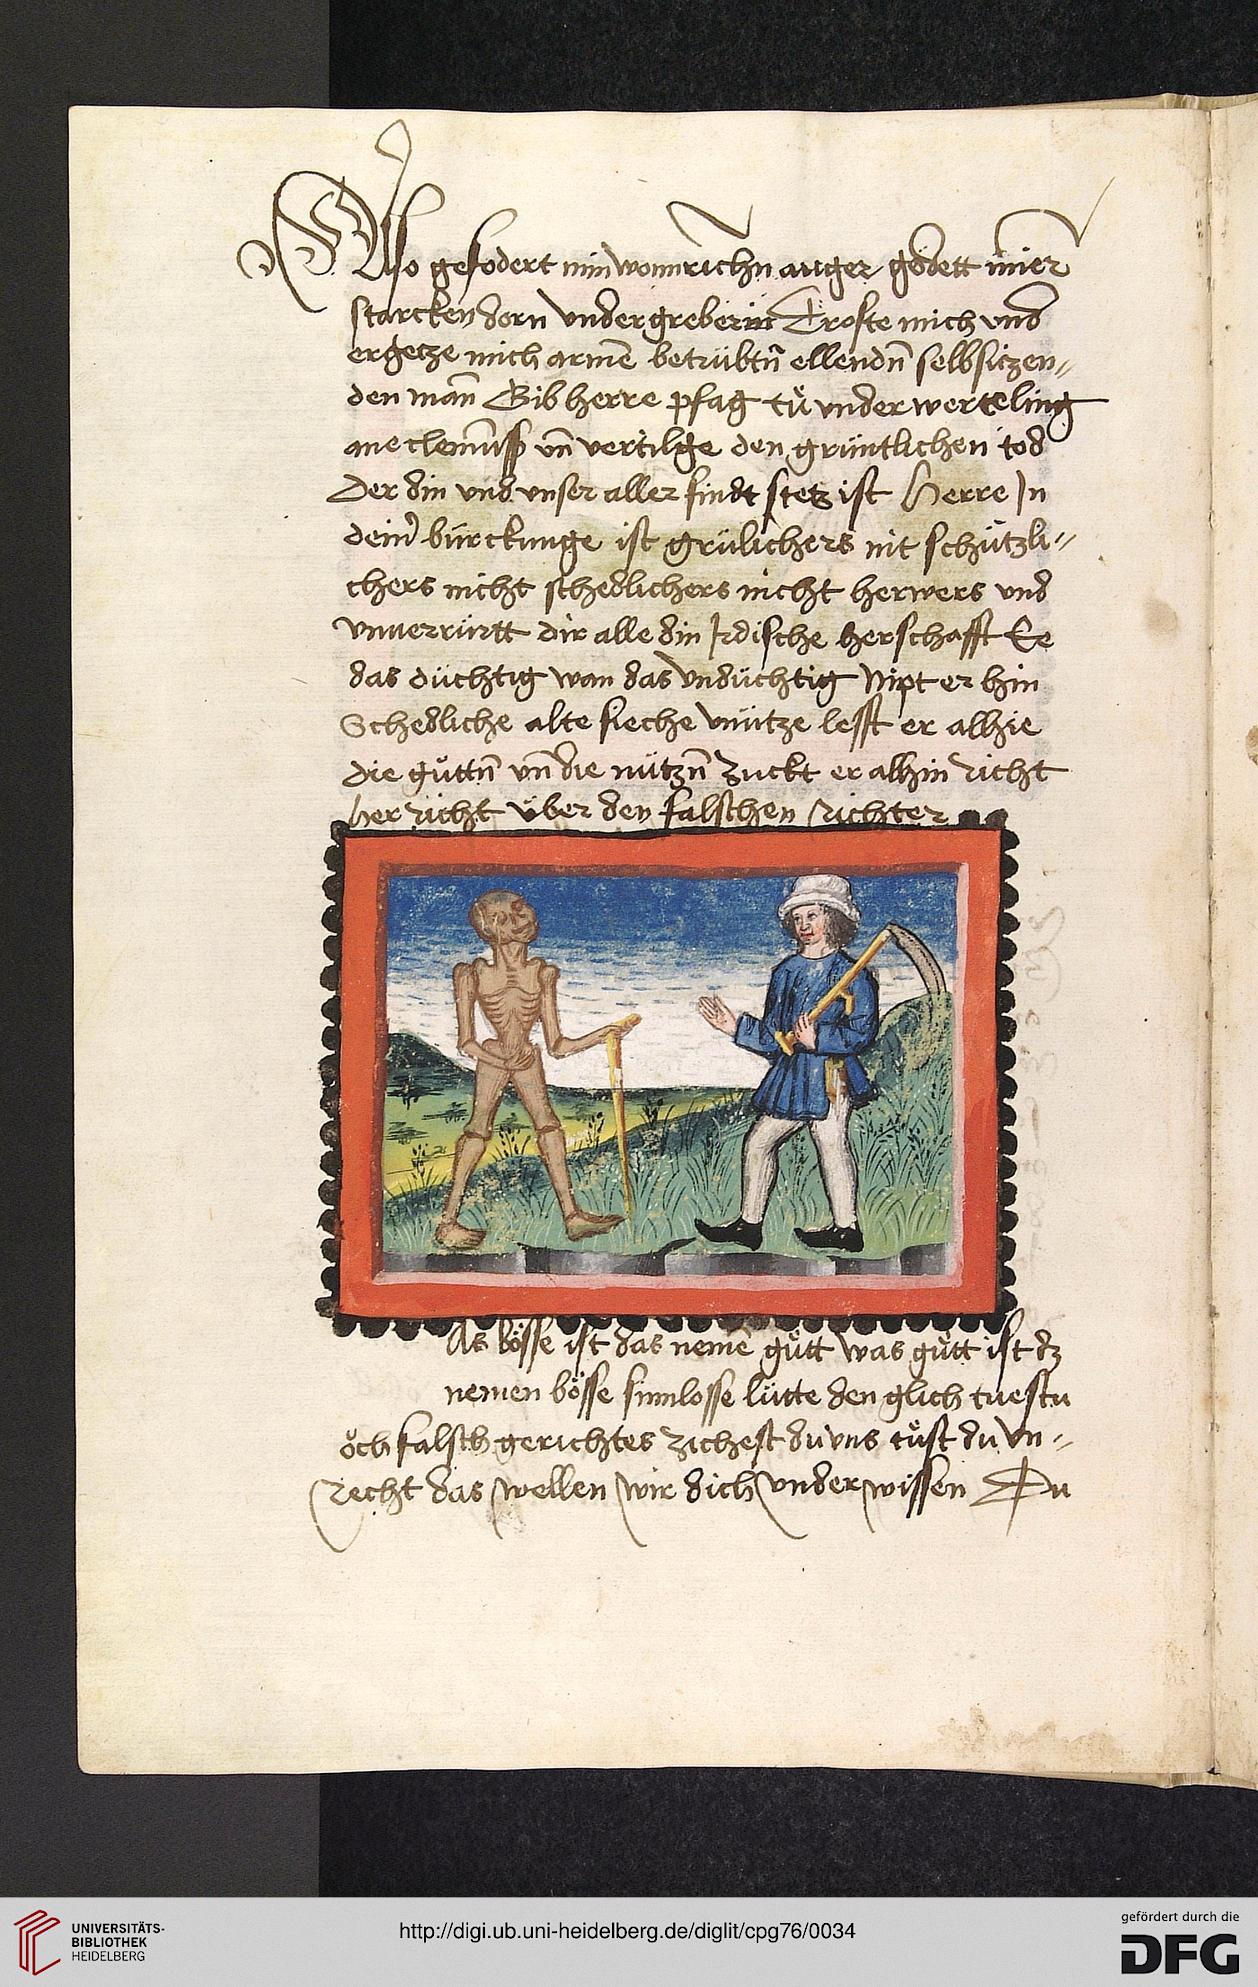 Also gefodert min wonnrichn anger gödett mier
starcken dorn vnder greberin Troste mich vnd
ergecze mich armē betrübtn̄ ellendn̄ selbsiczen„
den man̄ Gib herre pfag tü vnder werteling
ane clemūsß vn̄ vertilge den grüntlichen tod
Der din vnd vnser aller findt stetz ist Herre Jn
deinr̄ bürckunge ist grülichers nit schützli„
chers nicht schedlichers nicht herwers vnd
vnuerrürtt dir alle din Jrdische herschafft Ee
das düchtig wan das vndüchtig Nipt er hin
Schedliche alte sieche vnütze lesst er alhie
die gůttn̄ vn̄ die nützn̄ zuckt er alhin richt
her richt über den falschen richter
As bösse ist das nemē gůtt was gůtt ist dz
nemen bösse sinnlosse lütte den glich tuestu
öch falsch gerichtes zichest du vns tůst du vn„
recht das wellen wir dich vnderwissen Du
UNIVERSITÄTS-
BIBLIOTHEK
HEIDELBERG
http://digi.ub.uni-heidelberg.de/diglit/cpg76/0034
gefördert durch die
DFG